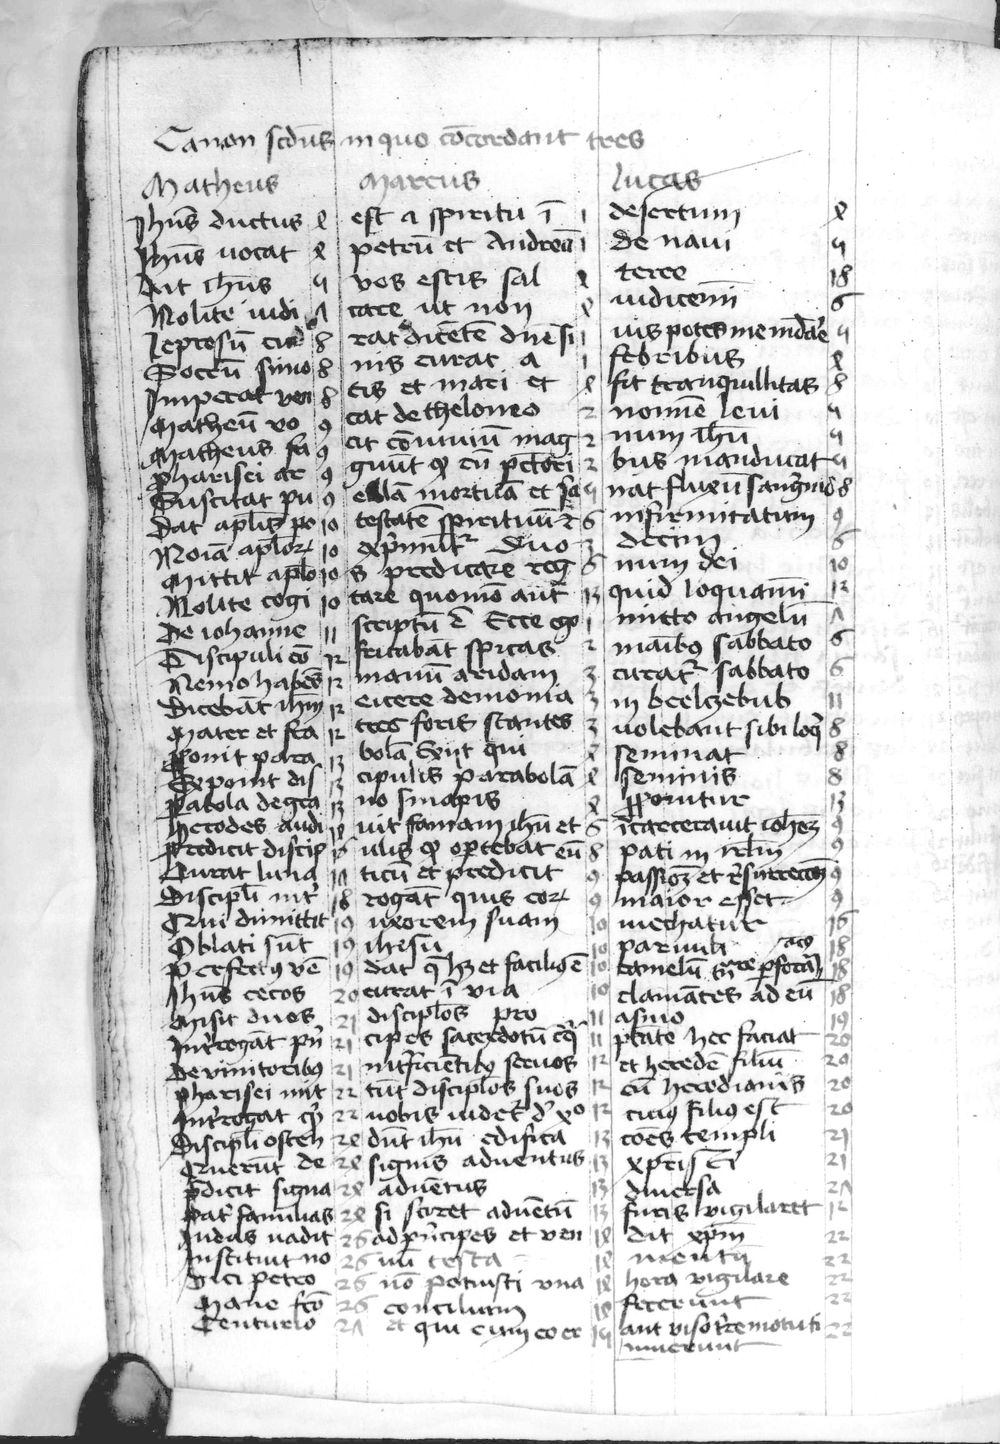 Canon scdus in quo cōcordant tres
Matheus Marcus Lucas
Jhūs ductus 4 est a spiritu ī 1 desertum 4
Jhūs uocat 4 petrū et Andreā 1 de naui 5
Ait ihūs 5 vos estis sal 4 terre 18
Nolite iudi 7 care ut non 4 iudicemī 6
leprosū cu 8 rat dicētē dnē si 1 uis potes me mūdāre 5
Socrū simo 8 nis curat a 1 febribus 4
Imperat ven 8 tis et mari et 4 fit tranquillitas 8
Matheū vo 9 cat de theloneo 2 nomīe leui 5
Matheus fa 9 cit cōuiuiū mag 2 num ihū 5
pharisei ar 9 guūt qd cū pctori 2 bus manducat 5
Suscitat pu 9 ellam mortuā et sa 5 nat fluxū sanguīs 8
Dat aplis po 10 testatē spirituū et 6 infirmitatum 9
Noīa aplor 10 exprimūtr Duo 3 decim 6
Mittit aplo 10 s predicare reg 6 num dei 10
Nolite cogi 10 tare quomō aut 13 quid loquamī 12
De iohanne 11 scriptū ē Ecce ego 1 mitto angelū 7
Discipuli cō 12 fricabāt spicas 2 manibus sabbato 6
Nemo habēs 12 manum aridam 3 curatr sabbato 6
Dicebāt ihm 12 eicere demonia 3 in beelzebub 11
Mater et fra 12 tres foris stantes 3 uolebant sibi loqi 8
Ponit para 13 bolā Exijt qui 4 seminat 8
Exponit dis 13 cipulis parabolā 4 seminis 8
Pabola de gra 13 no sinapis 4 pponitur 13
Herodes audi 14 uit famam ihū et 6 īcarcerauit iohez 9
Predicit discip 16 ulis qd oportebat eū 8 pati in irlm 9
Curat luna 17 ticū et predicit 9 passioz et resurrectioz 9
Discipli intr 18 rogāt quis eor 9 maior esset 9
Qui dimittit 19 uxorem suam 10 mechatur 16
Oblati sūt 19 ihesu 10 paruuli 18
Perfectus vē 19 dat qd hz et facilius ē 10 camelū 18
Jhūs cecos 20 curat ī via 10 clamātes ad eū 18
Misit duos 21 disciplos pro 11 asino 19
Intrrogāt pri 21 cipes sacerdotū 11 ptāte hec faciat 20
De vinitoribus 21 intrficientibus seruos 12 et heredē filiū 20
Pharisei mit 22 tūt disciplos suos 12 cū herodianis 20
Intrrogat 22 uobis uidetr de xpo 12 cuius filius est 20
Discipli osten 24 dūt ihū edifica 13 coēs templi 21
Querūt de 24 signis aduentus 13 21
pdicit signa 24 aduētus 13 diuersa 21
Patr familias 24 si sciret aduētū 13 furis vigilaret 12
Iudas uadit 26 ad pricipes et ven 14 dit xpm 22
Instituit no 26 uū testa 14 mentū 22
Dici petro 26 nō potuisti una 14 hora vigilare 22
Mane fco 26 concilium 14 fecerunt 22
Centurio 27 et qui cum eo er 15 ant viso tremotu ti 22
muerunt